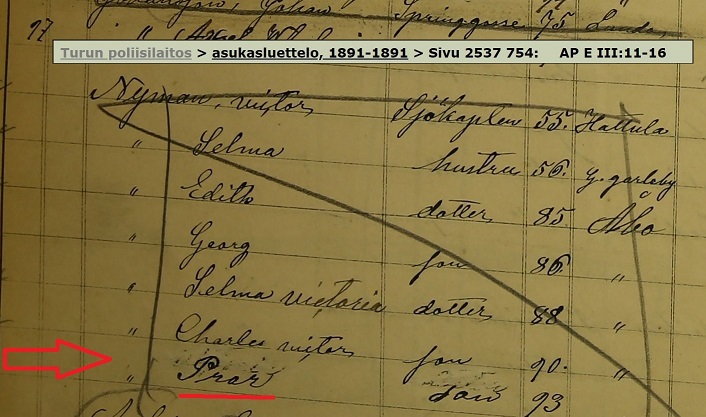 Springgosse 75
97 "
Turun poliisilaitos > asukasluettelo, 1891-1891 > Sivu 2537 754: AP E III:11-16
Nyman, victor Sjökapten 55. Hattula
" Selma hustru 56. G. garleby
" Edith dotter 85 Åbo
" Georg son 86. "
" Selma victoria dotter 88 "
" Charles victor son 90. "
" son 93